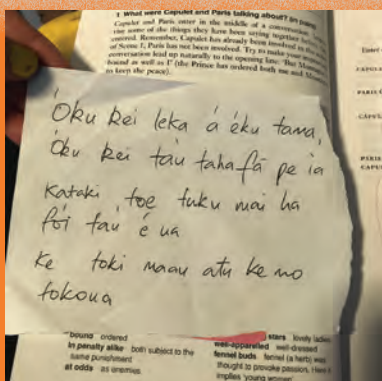 1 What were Capulet and Paris talking about? (in pairs)
Capulet and Paris enter in the middle of a conversation.
some of the things they have been saying together before they
entered. Remember, Capulet has already been involved in the
of Scene 1, Paris has not been involved. Try to make your
conversation lead up naturally to the opening line: 'But Montague
bound as well as I' (the Prince has ordered both me and Montague
to keep the peace).
Óku kei leka á éku tama,
Óku kei táu tahafā pe ia
Kataki toe tuku mai ha
fói táu é ua
Ke toki maau atu ke mo
tokoua
bound ordered
In penalty alike both subject to the
same punishment
at odds as enemies
stars lovely ladies
well-apparelled well-dressed
fennel buds fennel (a herb) was
thought to provoke passion. Here it
implies 'young women'
PARIS
CAPULET